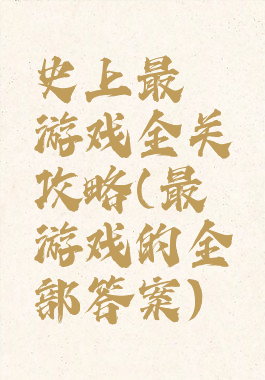 史上最
游戏全关
攻略(最
游戏的全
部答案)